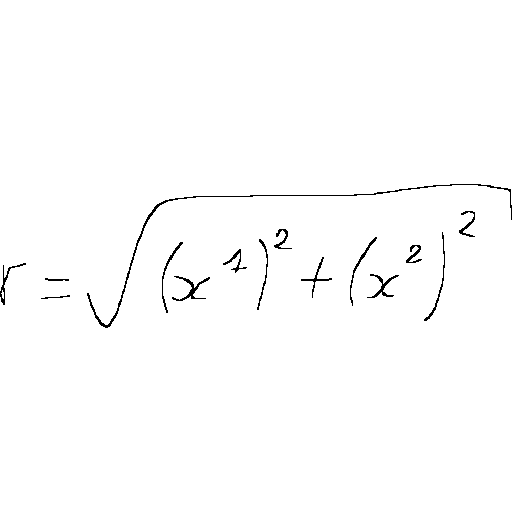 r = \sqrt{(x^1)^2 + (x^2)^2}